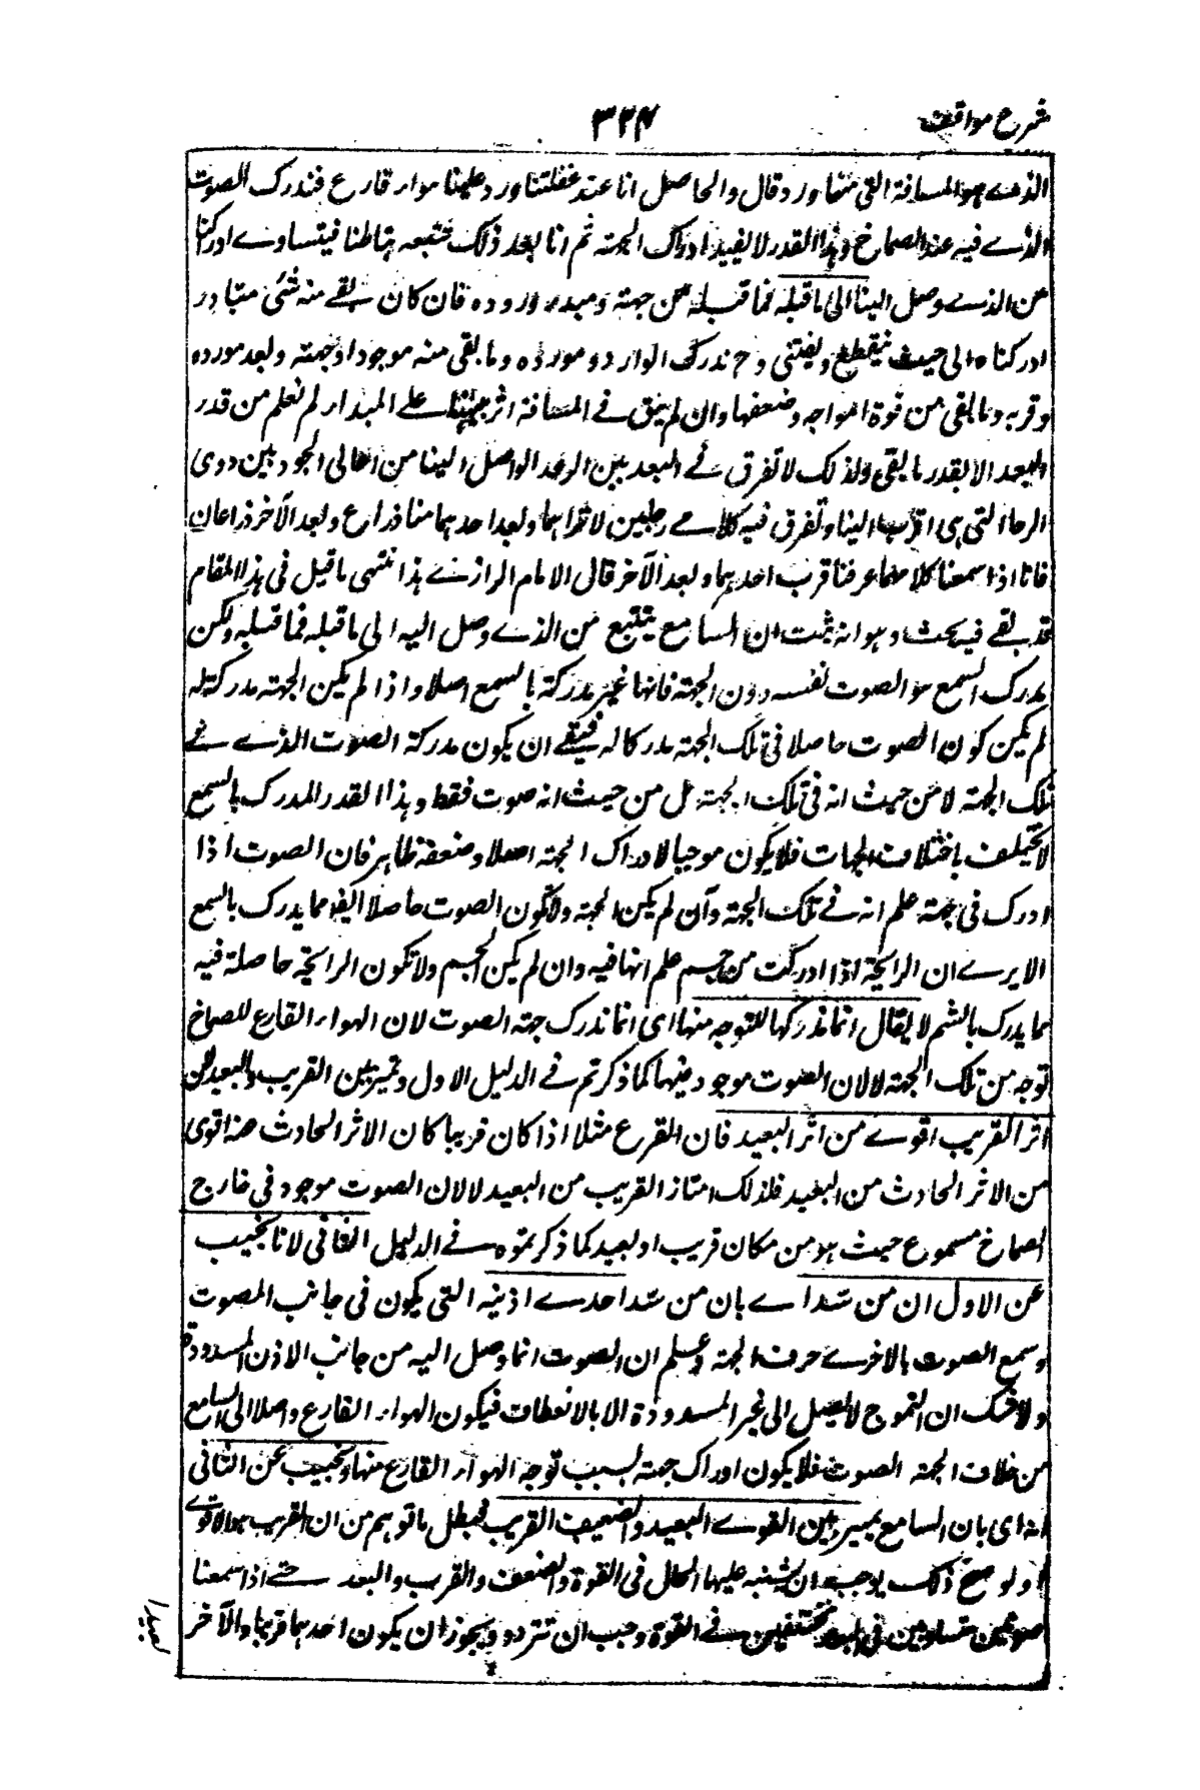 شرح مواقف
۳۲۴
الذے هو المسافة التی منها ورد قال والحاصل انا عند غفلتنا ورد علینا هواء قارع فندرک الصوت
الذے فیه عند الصماخ وهذا القدر لا یفید ادراک الجهة ثم انا بعد ذلک نتتبعه بتاملنا فیتساوے ادراکنا
من الذے وصل الینا الی ما قبله فما قبله من جهته ومبدء وروده فان کان بقے منه شئ متبادر
ادرکناه الی حیث ینقطع ویفنی وح ندرک الوارد ومورده وما بقی منه موجودا وجهته وبعد مورده
وقربه وما بقی من قوة امواجه وضعفها وان لم یبق فے المسافة اثر ینبهنا علے المبدأ لم نعلم من قدر
البعد الا بقدر ما بقی ولذلک لا نفرق فے البعد بین الرعد الواصل الینا من اعالی الجو وبین دوی
الرحا التی هی اقرب الینا ونفرق فیه کلامے رجلین لا نراهما وبعد احدهما منا ذراع وبعد الآخر ذراعان
فانا اذا سمعنا کلامهما عرفنا قرب احدهما وبعد الآخر قال الامام الرازے هذا منتهی ما قیل فی هذا المقام
قد بقے فیه بحث وهو انه ثبت ان السامع یتتبع من الذے وصل الیه الی ما قبله فما قبله ولکن
مدرک السمع هو الصوت نفسه دون الجهة فانها غیر مدرکة بالسمع اصلا واذا لم یکن الجهة مدرکة له
لم یکن کون الصوت حاصلا فی تلک الجهة مدرکا له فبقے ان یکون مدرکه الصوت الذے فے
تلک الجهة لا من حیث انه فی تلک الجهة بل من حیث انه صوت فقط وهذا القدر المدرک بالسمع
لا یختلف باختلاف الجهات فلا یکون موجبا لادراک الجهة اصلا وضعفه ظاهر فان الصوت اذا
ادرک فی جهة علم انه فے تلک الجهة وان لم یکن الجهة ولا کون الصوت حاصلا فیها مما یدرک بالسمع
الا یرے ان الرایحة اذا ادرکت من جسم علم انها فیه وان لم یکن الجسم ولا کون الرایحة حاصلة فیه
مما یدرک بالشم لا یقال انما ندرکها للتوجه منها ای انما ندرک جهة الصوت لان الهواء القارع للصماخ
توجه من تلک الجهة لا لان الصوت موجود فیها کما ذکرتم فے الدلیل الاول وتمیز بین القریب والبعید لان
اثر القریب اقوے من اثر البعید فان القرع مثلا اذا کان قریبا کان الاثر الحادث عنه اقوی
من الاثر الحادث من البعید فلذلک امتاز القریب من البعید لا لان الصوت موجود فی خارج
الصماخ مسموع حیث هو من مکان قریب او بعید کما ذکرتموه فے الدلیل الثانی لانا نجیب
عن الاول ان من سد اے بان من سد احدے اذنیه التی یکون فی جانب المصوت
وسمع الصوت بالاخرے عرف الجهة وعلم ان الصوت انما وصل الیه من جانب الاذن المسدودة
ولا شک ان التموج لا یصل الی غیر المسدودة الا بالانعطاف فیکون الهواء القارع واصلا الی السامع
من خلاف الجهة الصوت فلا یکون ادراک جهته بسبب توجه الهواء القارع منها ونجیب عن الثانی
انه ای بان السامع یمیز بین القوے البعید والضعیف القریب فبطل ما توهم من ان القریب هو الاقوے
اذ لو صح ذلک یوجب ان یشتبه علیها الحال فی القوة والضعف والقرب والبعد حتے اذا سمعنا
صوتین متساویین فی البعد مختلفین فے القوة وجب ان نتردد ونجوز ان یکون احدهما قریبا والآخر
بعیدا